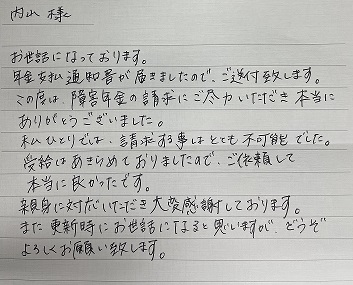 内山 様
お世話になっております。
年金支払通知書が届きましたので、ご送付致します。
この度は、障害年金の請求にご尽力いただき本当に
ありがとうございました。
私ひとりでは、請求する事はとても不可能でした。
受給はあきらめておりましたので、ご依頼して
本当に良かったです。
親身に対応いただき大変感謝しております。
また更新時にお世話になると思いますが、どうぞ
よろしくお願い致します。